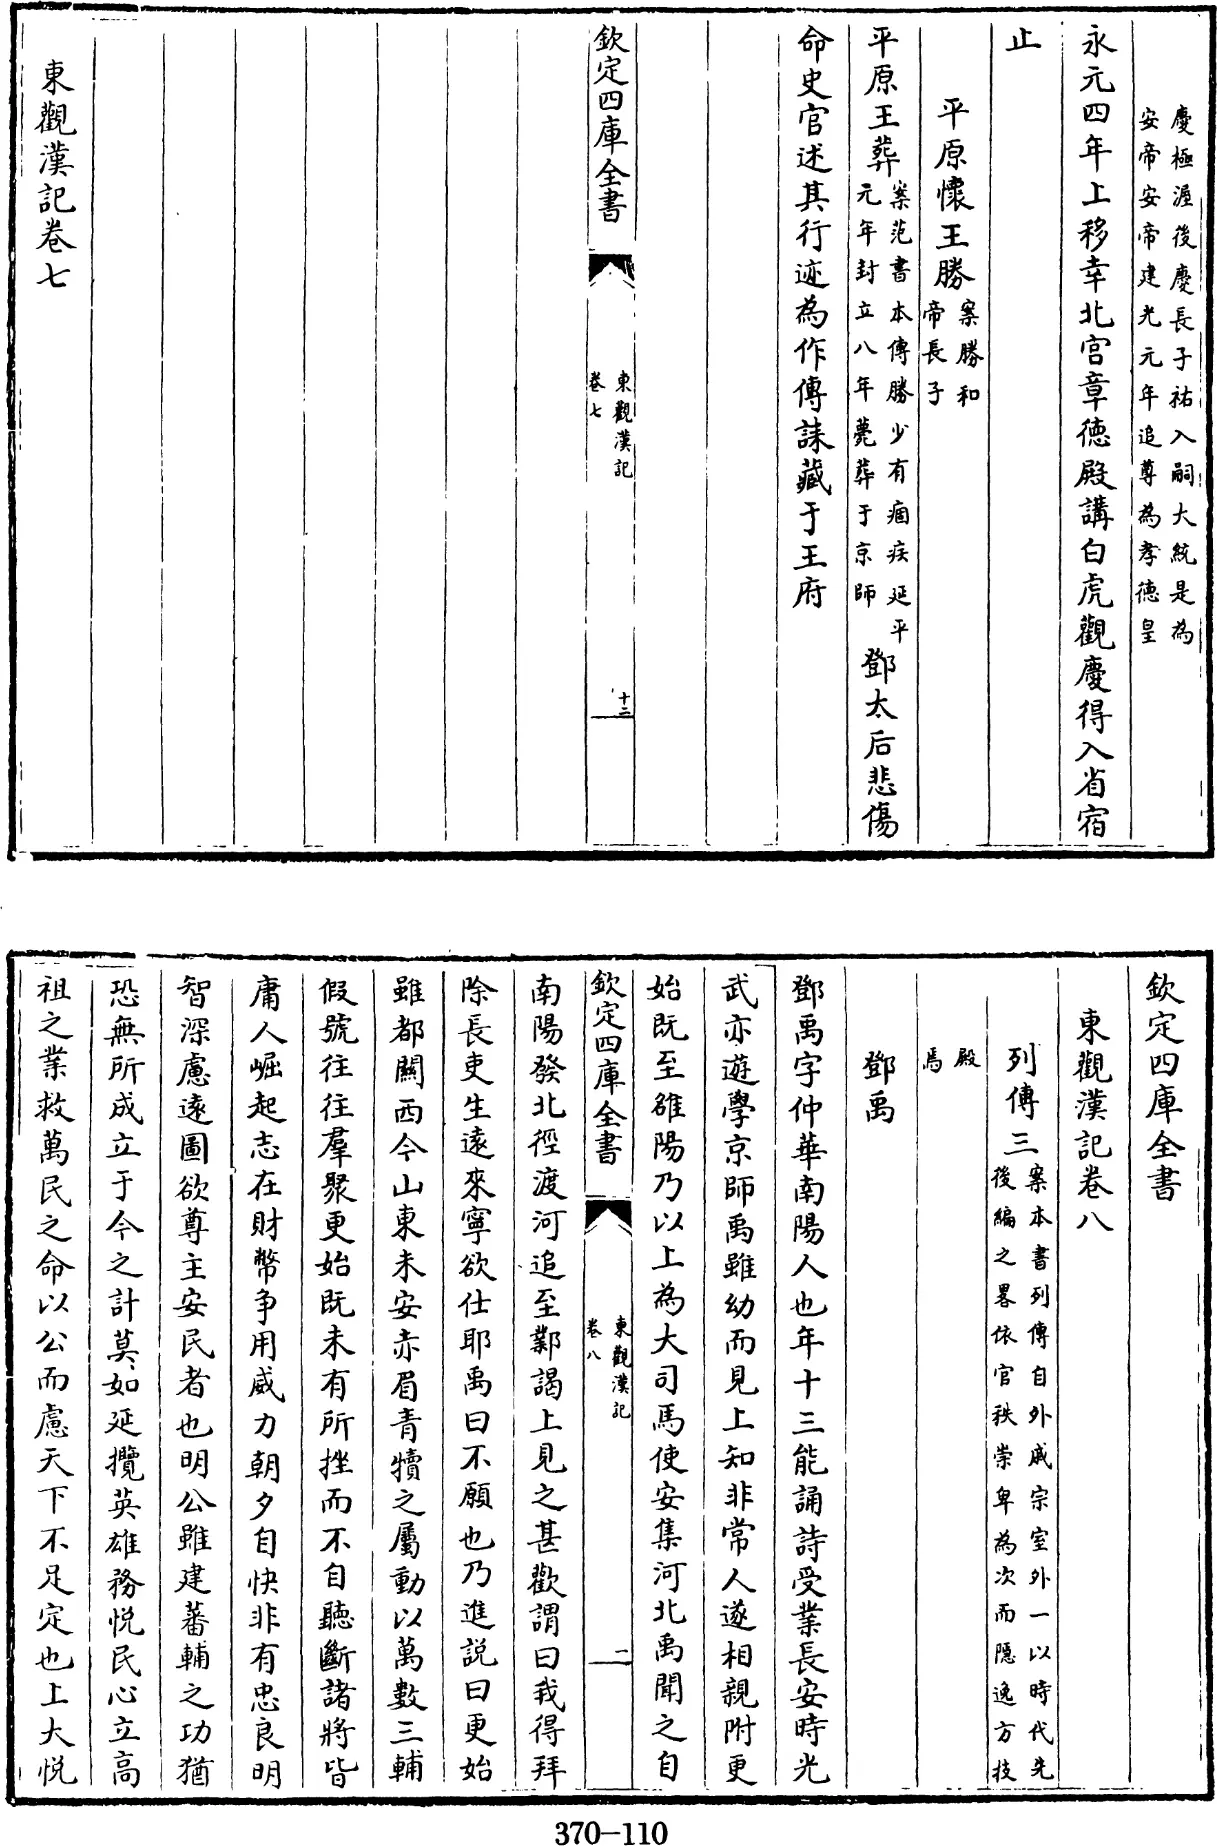 慶極渥後慶長子祐入嗣大統是為
安帝安帝建光元年追尊為孝德皇
永元四年上移幸北宫章德殿講白虎觀慶得入省宿
止
平原懷王勝案勝和
帝長子
平原王葬案范書本傳勝少有痼疾延平
元年封立八年薨葬于京師鄧太后悲傷
命史官述其行迹為作傳誄藏于王府
欽定四庫全書
東觀漢記
卷七
十二
東觀漢記卷七
欽定四庫全書
東觀漢記卷八
列傳三案本書列傳自外戚宗室外一以時代先
後編之畧依官秩崇卑為次而隱逸方技
殿
焉
鄧禹
鄧禹字仲華南陽人也年十三能誦詩受業長安時光
武亦遊學京師禹雖幼而見上知非常人遂相親附更
始既至雒陽乃以上為大司馬使安集河北禹聞之自
欽定四庫全書
東觀漢記
卷八
二
南陽發北徑渡河追至鄴謁上見之甚歡謂曰我得拜
除長吏生遠來寧欲仕耶禹曰不願也乃進説曰更始
雖都關西今山東未安赤眉青犢之屬動以萬數三輔
假號往往羣聚更始既未有所挫而不自聽斷諸將皆
庸人崛起志在財幣争用威力朝夕自快非有忠良明
智深慮遠圖欲尊主安民者也明公雖建蕃輔之功猶
恐無所成立于今之計莫如延攬英雄務悦民心立高
祖之業救萬民之命以公而慮天下不足定也上大悦
370-110